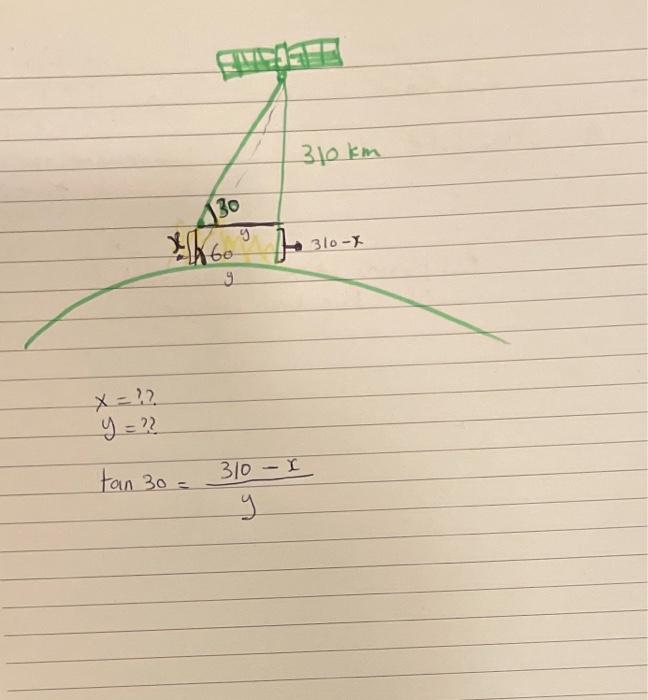 310 km
30
x
y
310-x
60
y
x = ??
y = ??
tan 30 = 310 - x / y